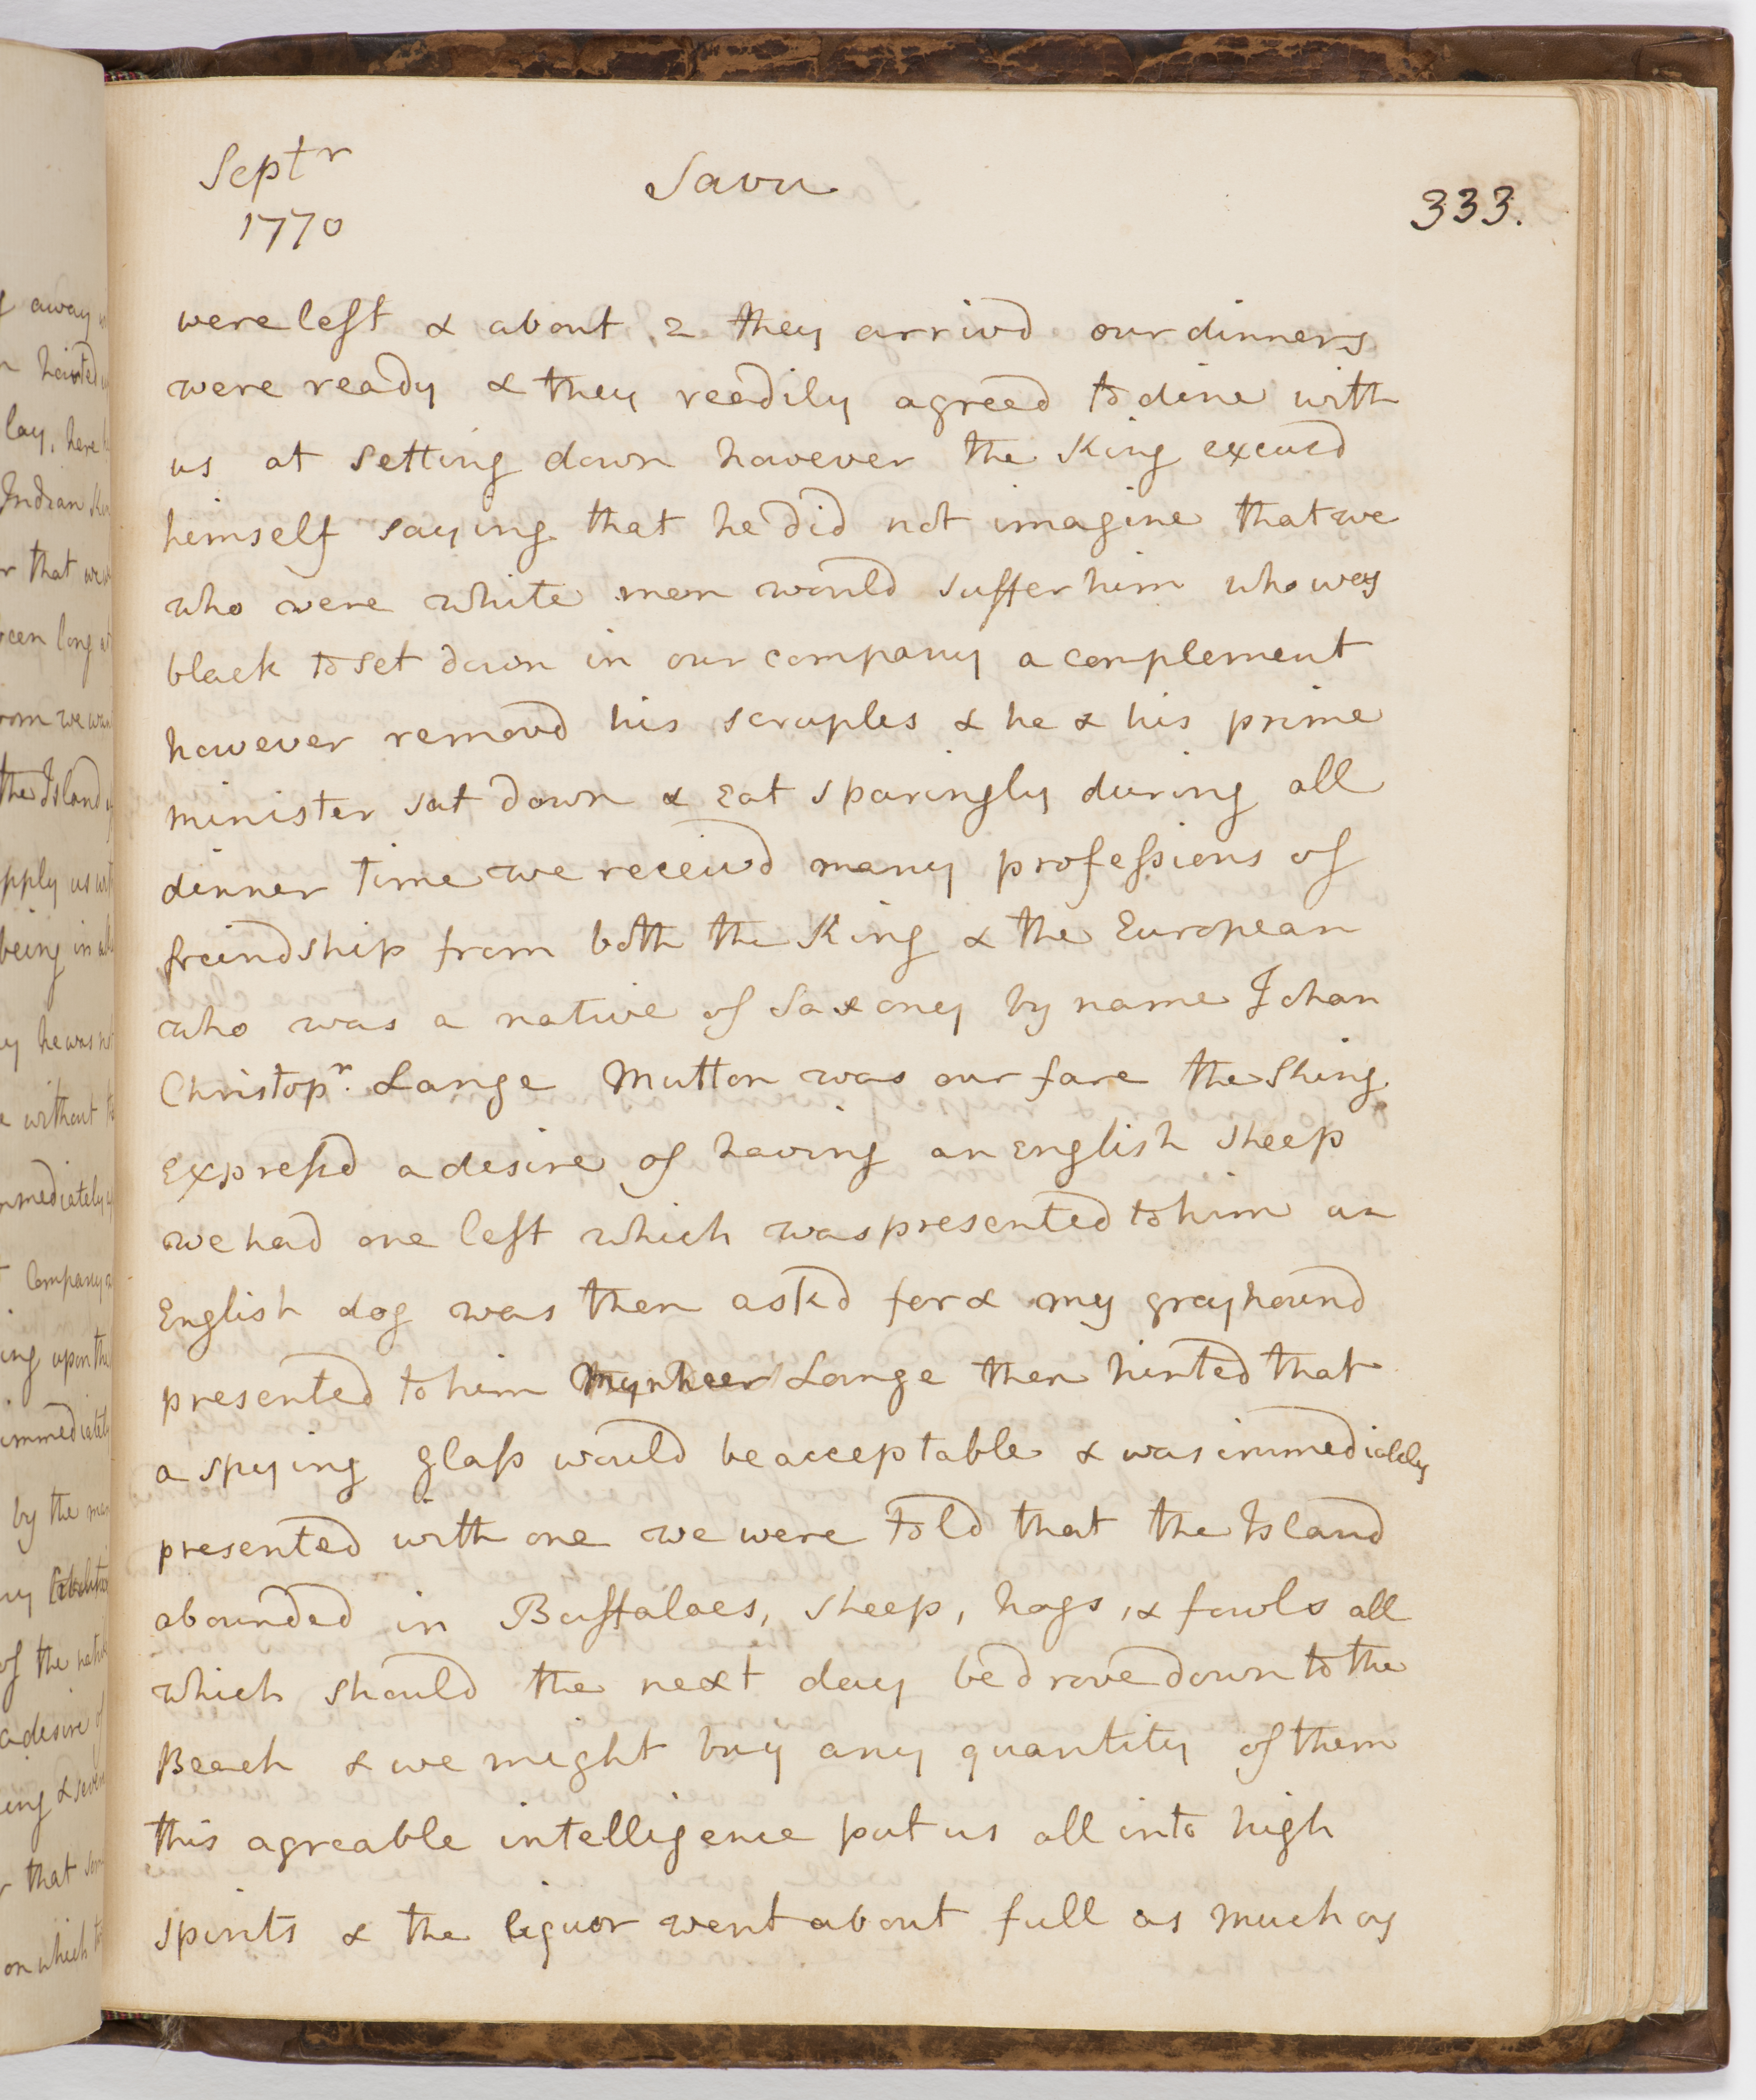 Septr
1770
Savu
333.
were left & about 2 they arrivd our dinners
were ready & they readily agreed to dine with
us at setting down however the King excusd
himself saying that he did not imagine that we
who were white men would suffer him who was
black to set down in our company a complement
however removd his scruples & he & his prime
minister sat down & eat sparingly during all
dinner time we receivd many professions of
freindship from both the King & the European
who was a native of Saxony by name Johan
Christopr. Lange Mutton was our fare the King
expressd a desire of having an English sheep
we had one left which was presented to him an
English dog was then askd for & my greyhound
presented to him Mynheer Lange then hinted that
a spying glass would be acceptable & was immediately
presented with one we were told that the Island
abounded in Buffaloes, sheep, hogs, & fowls all
which should the next day be drove down to the
Beach & we might buy any quantity of them
this agreable intelligence put us all into high
spirits & the liquor went about full as much as
away
hinted
lay, here
Indian
that we
long
we
the Island
us
being in
he was
without
Company
upon the
by the
of the
a desire of
&
that
on which